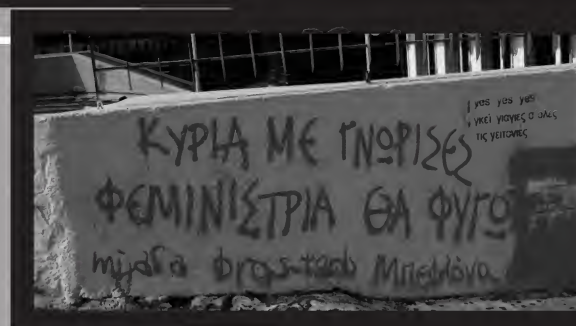 ΚΥΡΙΑ ΜΕ ΓΝΩΡΙΣΕΣ
ΦΕΜΙΝΙΣΤΡΙΑ ΘΑ ΦΥΓΩ
yes yes yes
γκέι γιαγιές σ όλες
τις γειτονιές